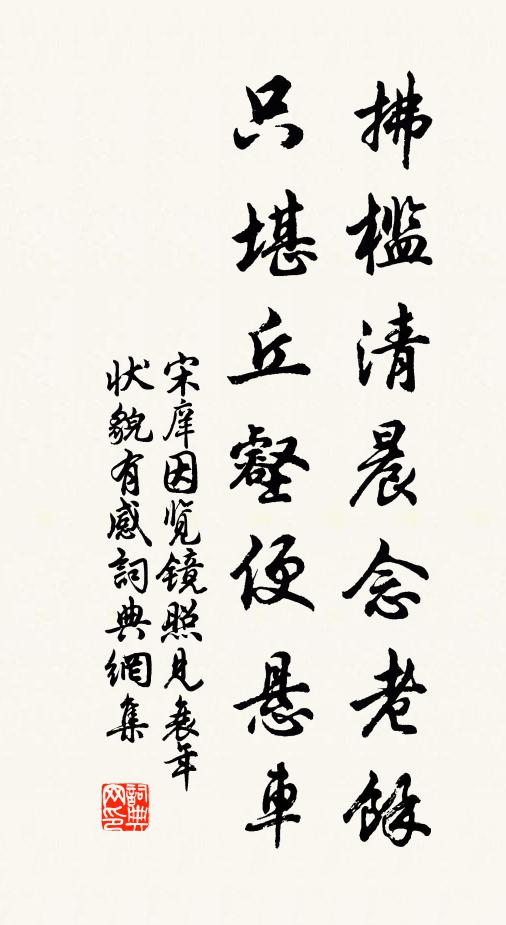 拂槛清晨念老餘
只堪丘壑便悬車
宋庠因览镜照見衰年
状貌有感詞典網集
詞典
网印